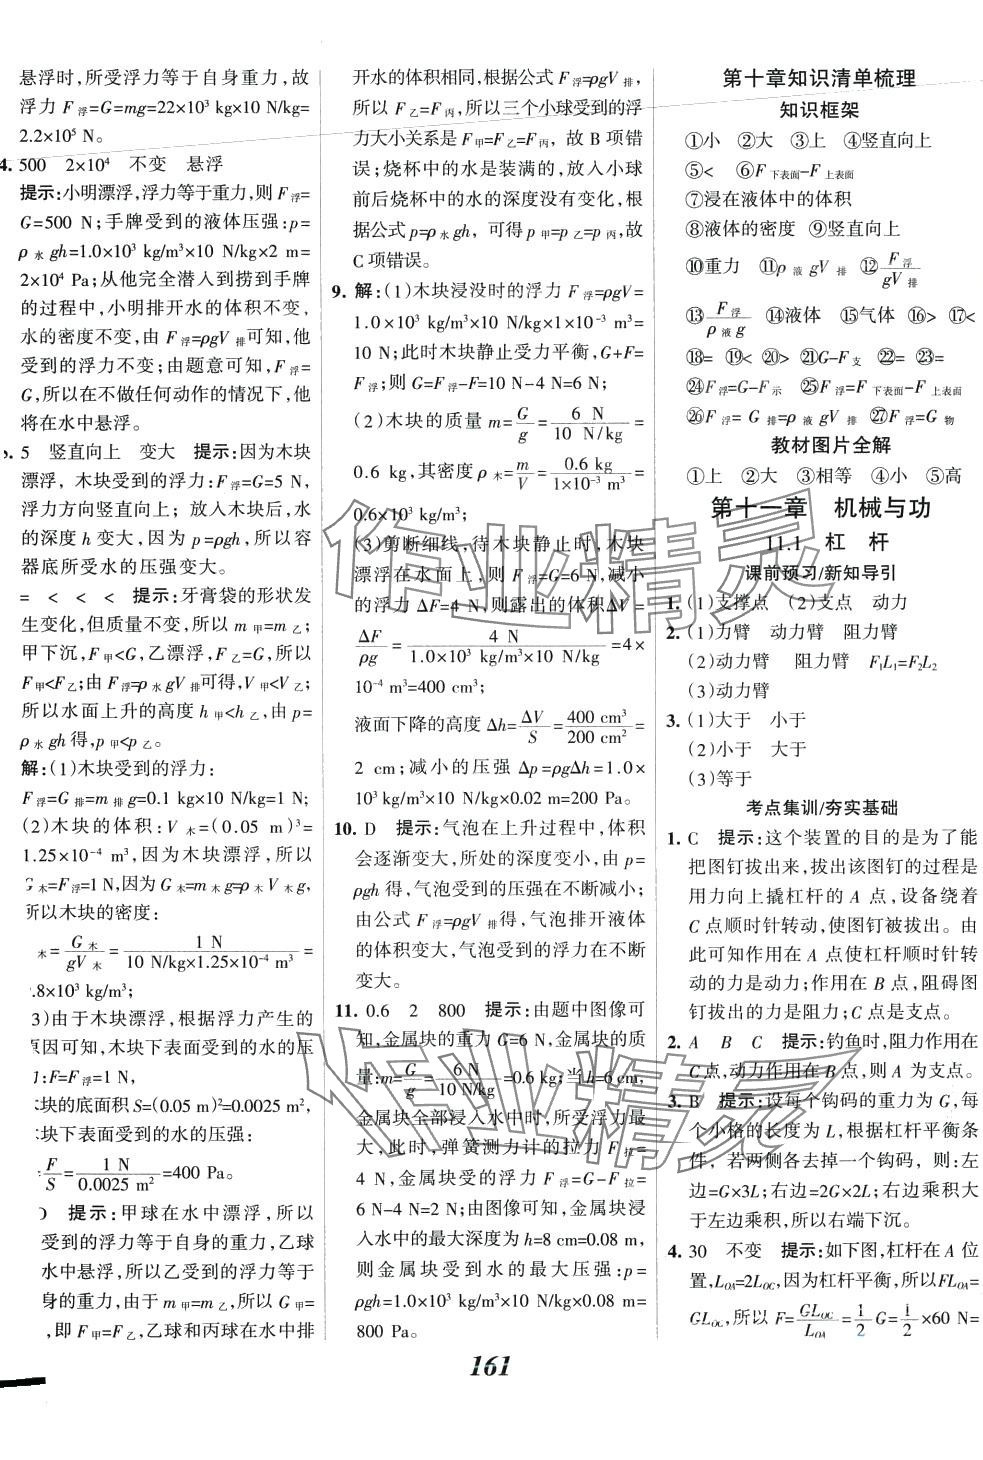 悬浮时,所受浮力等于自身重力,故
浮力 F浮=G=mg=22×10³ kg×10 N/kg=
2.2×10⁵ N。
4. 500 2×10⁴ 不变 悬浮
提示:小明漂浮,浮力等于重力,则 F浮=
G=500 N;手牌受到的液体压强:p=
ρ水gh=1.0×10³ kg/m³×10 N/kg×2 m=
2×10⁴ Pa;从他完全潜入到捞到手牌
的过程中,小明排开水的体积不变,
水的密度不变,由 F浮=ρgV排可知,他
受到的浮力不变;由题意可知,F浮=
G,所以在不做任何动作的情况下,他
将在水中悬浮。
5 竖直向上 变大 提示:因为木块
漂浮,木块受到的浮力:F浮=G=5 N,
浮力方向竖直向上;放入木块后,水
的深度 h 变大,因为 p=ρgh,所以容
器底所受水的压强变大。
= < < < 提示:牙膏袋的形状发
生变化,但质量不变,所以 m甲=m乙;
甲下沉,F甲<G,乙漂浮,F乙=G,所以
F甲<F乙;由 F浮=ρ水gV排可得,V甲<V乙;
所以水面上升的高度 h甲<h乙,由 p=
ρ水gh得,p甲<p乙。
解:(1)木块受到的浮力:
F浮=G排=m排g=0.1 kg×10 N/kg=1 N;
(2)木块的体积:V木=(0.05 m)³=
1.25×10⁻⁴ m³,因为木块漂浮,所以
G木=F浮=1 N,因为 G木=m木g=ρ木V木g,
所以木块的密度:
木=G木/gV木=1 N/10 N/kg×1.25×10⁻⁴ m³=
.8×10³ kg/m³;
3)由于木块漂浮,根据浮力产生的
原因可知,木块下表面受到的水的压
:F=F浮=1 N,
块的底面积 S=(0.05 m)²=0.0025 m²,
木块下表面受到的水的压强:
=F/S=1 N/0.0025 m²=400 Pa。
D 提示:甲球在水中漂浮,所以
受到的浮力等于自身的重力,乙球
水中悬浮,所以乙受到的浮力等于
身的重力,由于 m甲=m乙,所以 G甲=
,即 F甲=F乙,乙球和丙球在水中排
开水的体积相同,根据公式 F浮=ρgV排,
所以 F乙=F丙,所以三个小球受到的浮
力大小关系是 F甲=F乙=F丙,故 B 项错
误;烧杯中的水是装满的,放入小球
前后烧杯中水的深度没有变化,根
据公式 p=ρ水gh,可得 p甲=p乙=p丙,故
C 项错误。
9. 解:(1)木块浸没时的浮力 F浮=ρgV=
1.0×10³ kg/m³×10 N/kg×1×10⁻³ m³=
10 N;此时木块静止受力平衡,G+F=
F浮;则 G=F浮-F=10 N-4 N=6 N;
(2)木块的质量 m=G/g=6 N/10 N/kg=
0.6 kg,其密度 ρ木=m/V=0.6 kg/1×10⁻³ m³=
0.6×10³ kg/m³;
(3)剪断细线,待木块静止时,木块
漂浮在水面上,则 F浮=G=6 N,减小
的浮力 ΔF=4 N,则露出的体积ΔV=
ΔF/ρg=4 N/1.0×10³ kg/m³×10 N/kg=4×
10⁻⁴ m³=400 cm³;
液面下降的高度 Δh=ΔV/S=400 cm³/200 cm²=
2 cm;减小的压强 Δp=ρgΔh=1.0×
10³ kg/m³×10 N/kg×0.02 m=200 Pa。
10. D 提示:气泡在上升过程中,体积
会逐渐变大,所处的深度变小,由 p=
ρgh 得,气泡受到的压强在不断减小;
由公式 F浮=ρgV排得,气泡排开液体
的体积变大,气泡受到的浮力在不断
变大。
11. 0.6 2 800 提示:由题中图像可
知,金属块的重力 G=6 N,金属块的质
量:m=G/g=6 N/10 N/kg=0.6 kg;当 h=6 cm,
金属块全部浸入水中时,所受浮力最
大,此时,弹簧测力计的拉力 F拉=
4 N,金属块受的浮力 F浮=G-F拉=
6 N-4 N=2 N;由图像可知,金属块浸
入水中的最大深度为 h=8 cm=0.08 m,
则金属块受到水的最大压强:p=
ρgh=1.0×10³ kg/m³×10 N/kg×0.08 m=
800 Pa。
第十章知识清单梳理
知识框架
①小 ②大 ③上 ④竖直向上
⑤< ⑥F下表面-F上表面
⑦浸在液体中的体积
⑧液体的密度 ⑨竖直向上
⑩重力 ⑪ρ液gV排 ⑫F浮/gV排
⑬F浮/ρ液g ⑭液体 ⑮气体 ⑯> ⑰<
⑱= ⑲< ⑳> ㉑G-F支 ㉒= ㉓=
㉔F浮=G-F示 ㉕F浮=F下表面-F上表面
㉖F浮=G排=ρ液gV排 ㉗F浮=G物
教材图片全解
①上 ②大 ③相等 ④小 ⑤高
第十一章 机械与功
11.1 杠 杆
课前预习/新知导引
1. (1)支撑点 (2)支点 动力
2. (1)力臂 动力臂 阻力臂
(2)动力臂 阻力臂 F₁L₁=F₂L₂
(3)动力臂
3. (1)大于 小于
(2)小于 大于
(3)等于
考点集训/夯实基础
1. C 提示:这个装置的目的是为了能
把图钉拔出来,拔出该图钉的过程是
用力向上撬杠杆的 A 点,设备绕着
C 点顺时针转动,使图钉被拔出。由
此可知作用在 A 点使杠杆顺时针转
动的力是动力;作用在 B 点,阻碍图
钉拔出的力是阻力;C 点是支点。
2. A B C 提示:钓鱼时,阻力作用在
C点,动力作用在 B 点,则 A 为支点。
3. B 提示:设每个钩码的重力为 G,每
个小格的长度为 L,根据杠杆平衡条
件,若两侧各去掉一个钩码,则:左
边=G×3L;右边=2G×2L;右边乘积大
于左边乘积,所以右端下沉。
4. 30 不变 提示:如下图,杠杆在 A 位
置,L_OA=2L_OC,因为杠杆平衡,所以FL_OA=
GL_OC,所以 F=GL_OC/L_OA=1/2G=1/2×60 N=
161
作业精灵
作业精灵